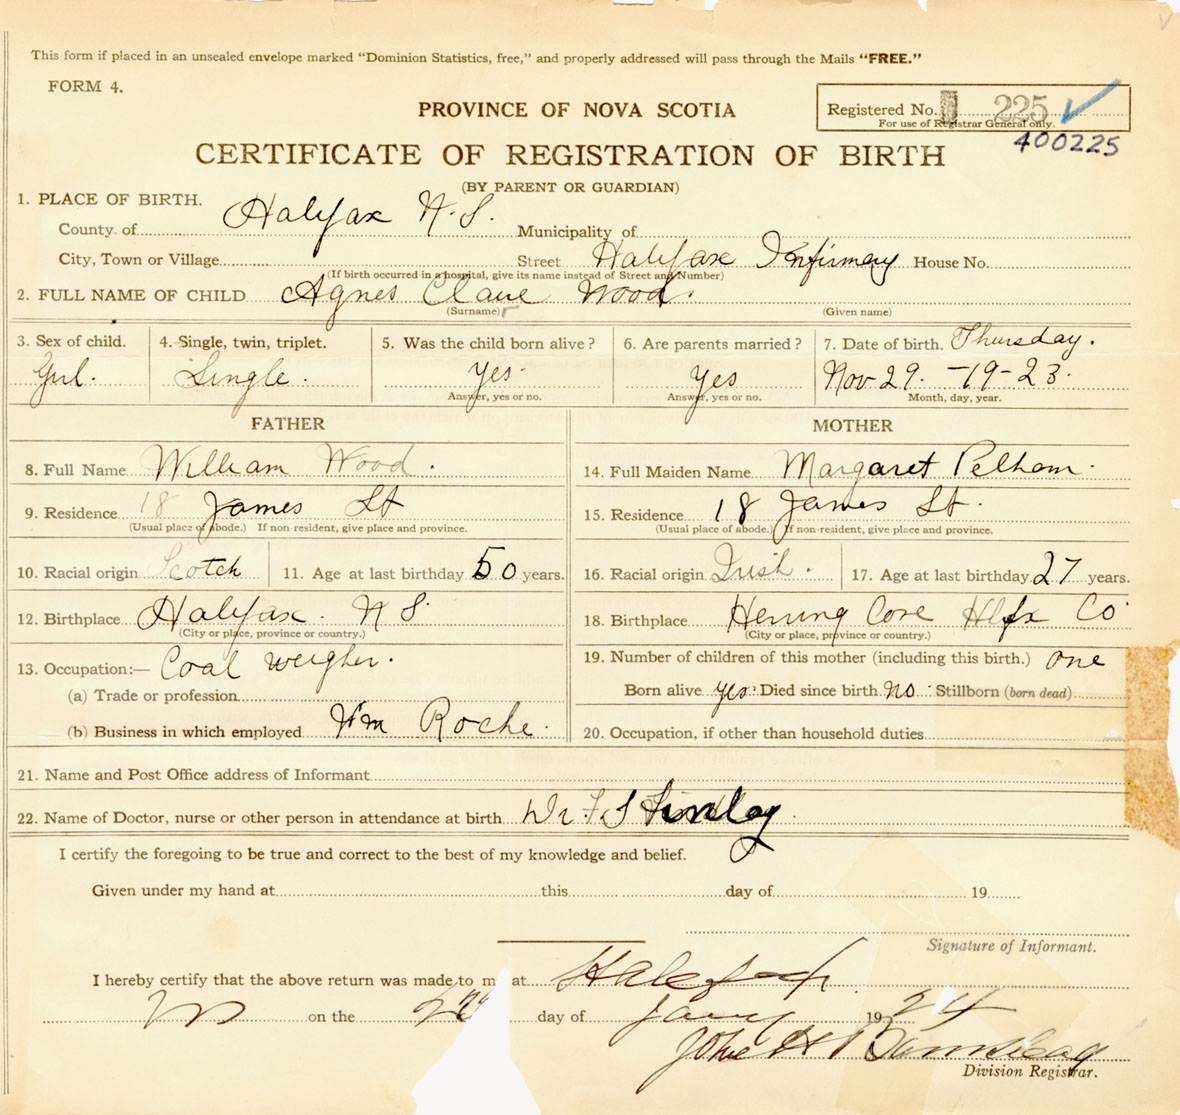 This form if placed in an unsealed envelope marked "Dominion Statistics, free," and properly addressed will pass through the Mails "FREE."
FORM 4.
PROVINCE OF NOVA SCOTIA
Registered No. 225
For use of Registrar General only.
400225
CERTIFICATE OF REGISTRATION OF BIRTH
(BY PARENT OR GUARDIAN)
1. PLACE OF BIRTH.
County of Halifax N.S. Municipality of
City, Town or Village Street Halifax Infirmary House No.
(If birth occurred in a hospital, give its name instead of Street and Number)
2. FULL NAME OF CHILD Agnes Claire Wood.
(Surname) (Given name)
3. Sex of child. 4. Single, twin, triplet. 5. Was the child born alive? 6. Are parents married? 7. Date of birth. Thursday.
Girl. Single. Yes. Yes Nov 29. -19-23.
Answer, yes or no. Answer, yes or no. Month, day, year.
FATHER
8. Full Name William Wood.
9. Residence 18 James St
(Usual place of abode.) If non-resident, give place and province.
10. Racial origin Scotch 11. Age at last birthday 50 years.
12. Birthplace Halifax. N S.
(City or place, province or country.)
13. Occupation:— Coal Weigher.
(a) Trade or profession
(b) Business in which employed Wm Roche.
MOTHER
14. Full Maiden Name Margaret Pelham.
15. Residence 18 James St.
(Usual place of abode.) If non-resident, give place and province.
16. Racial origin Irish. 17. Age at last birthday 27 years.
18. Birthplace Herring Cove Hlfx Co
(City or place, province or country.)
19. Number of children of this mother (including this birth.) one
Born alive yes. Died since birth no. Stillborn (born dead)
20. Occupation, if other than household duties
21. Name and Post Office address of Informant
22. Name of Doctor, nurse or other person in attendance at birth Dr. F. S Finlay
I certify the foregoing to be true and correct to the best of my knowledge and belief.
Given under my hand at this day of 19
Signature of Informant.
I hereby certify that the above return was made to m at Halifax
on the day of Jany 1924
John H
Division Registrar.